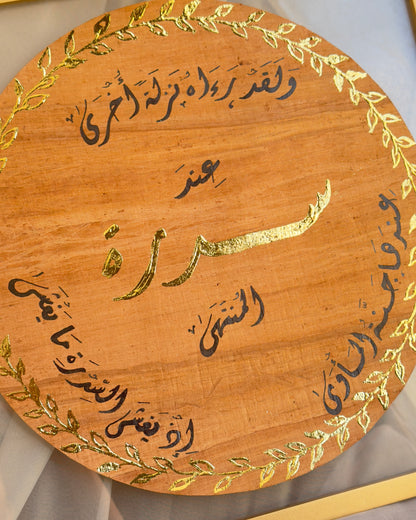 ولَقَد رَءَاهُ نَزلَةً أُخرَىٰ
عِندَ
سدرة
المُنتَهَىٰ
عندها جنة المأوَىٰ
إِذ يَغشَى السِّدرَةَ مَا يَغشَىٰ